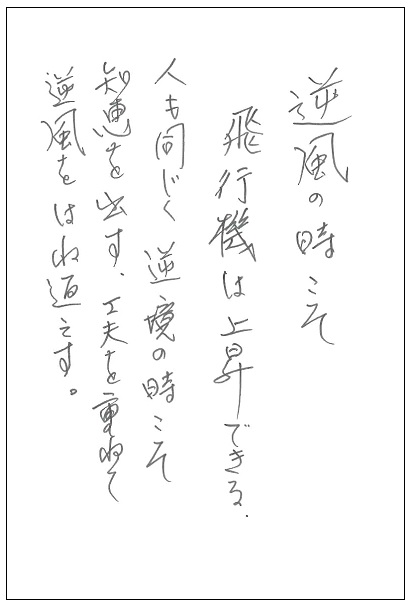 逆風の時こそ
飛行機は上昇できる.
人も同じく逆境の時こそ
知恵を出す、工夫を重ねて
逆風をはね返こす。